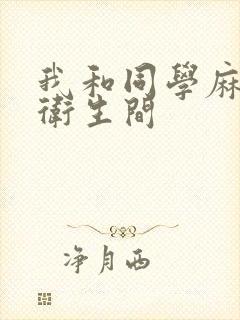 我和同學麻
衛生間
净月西